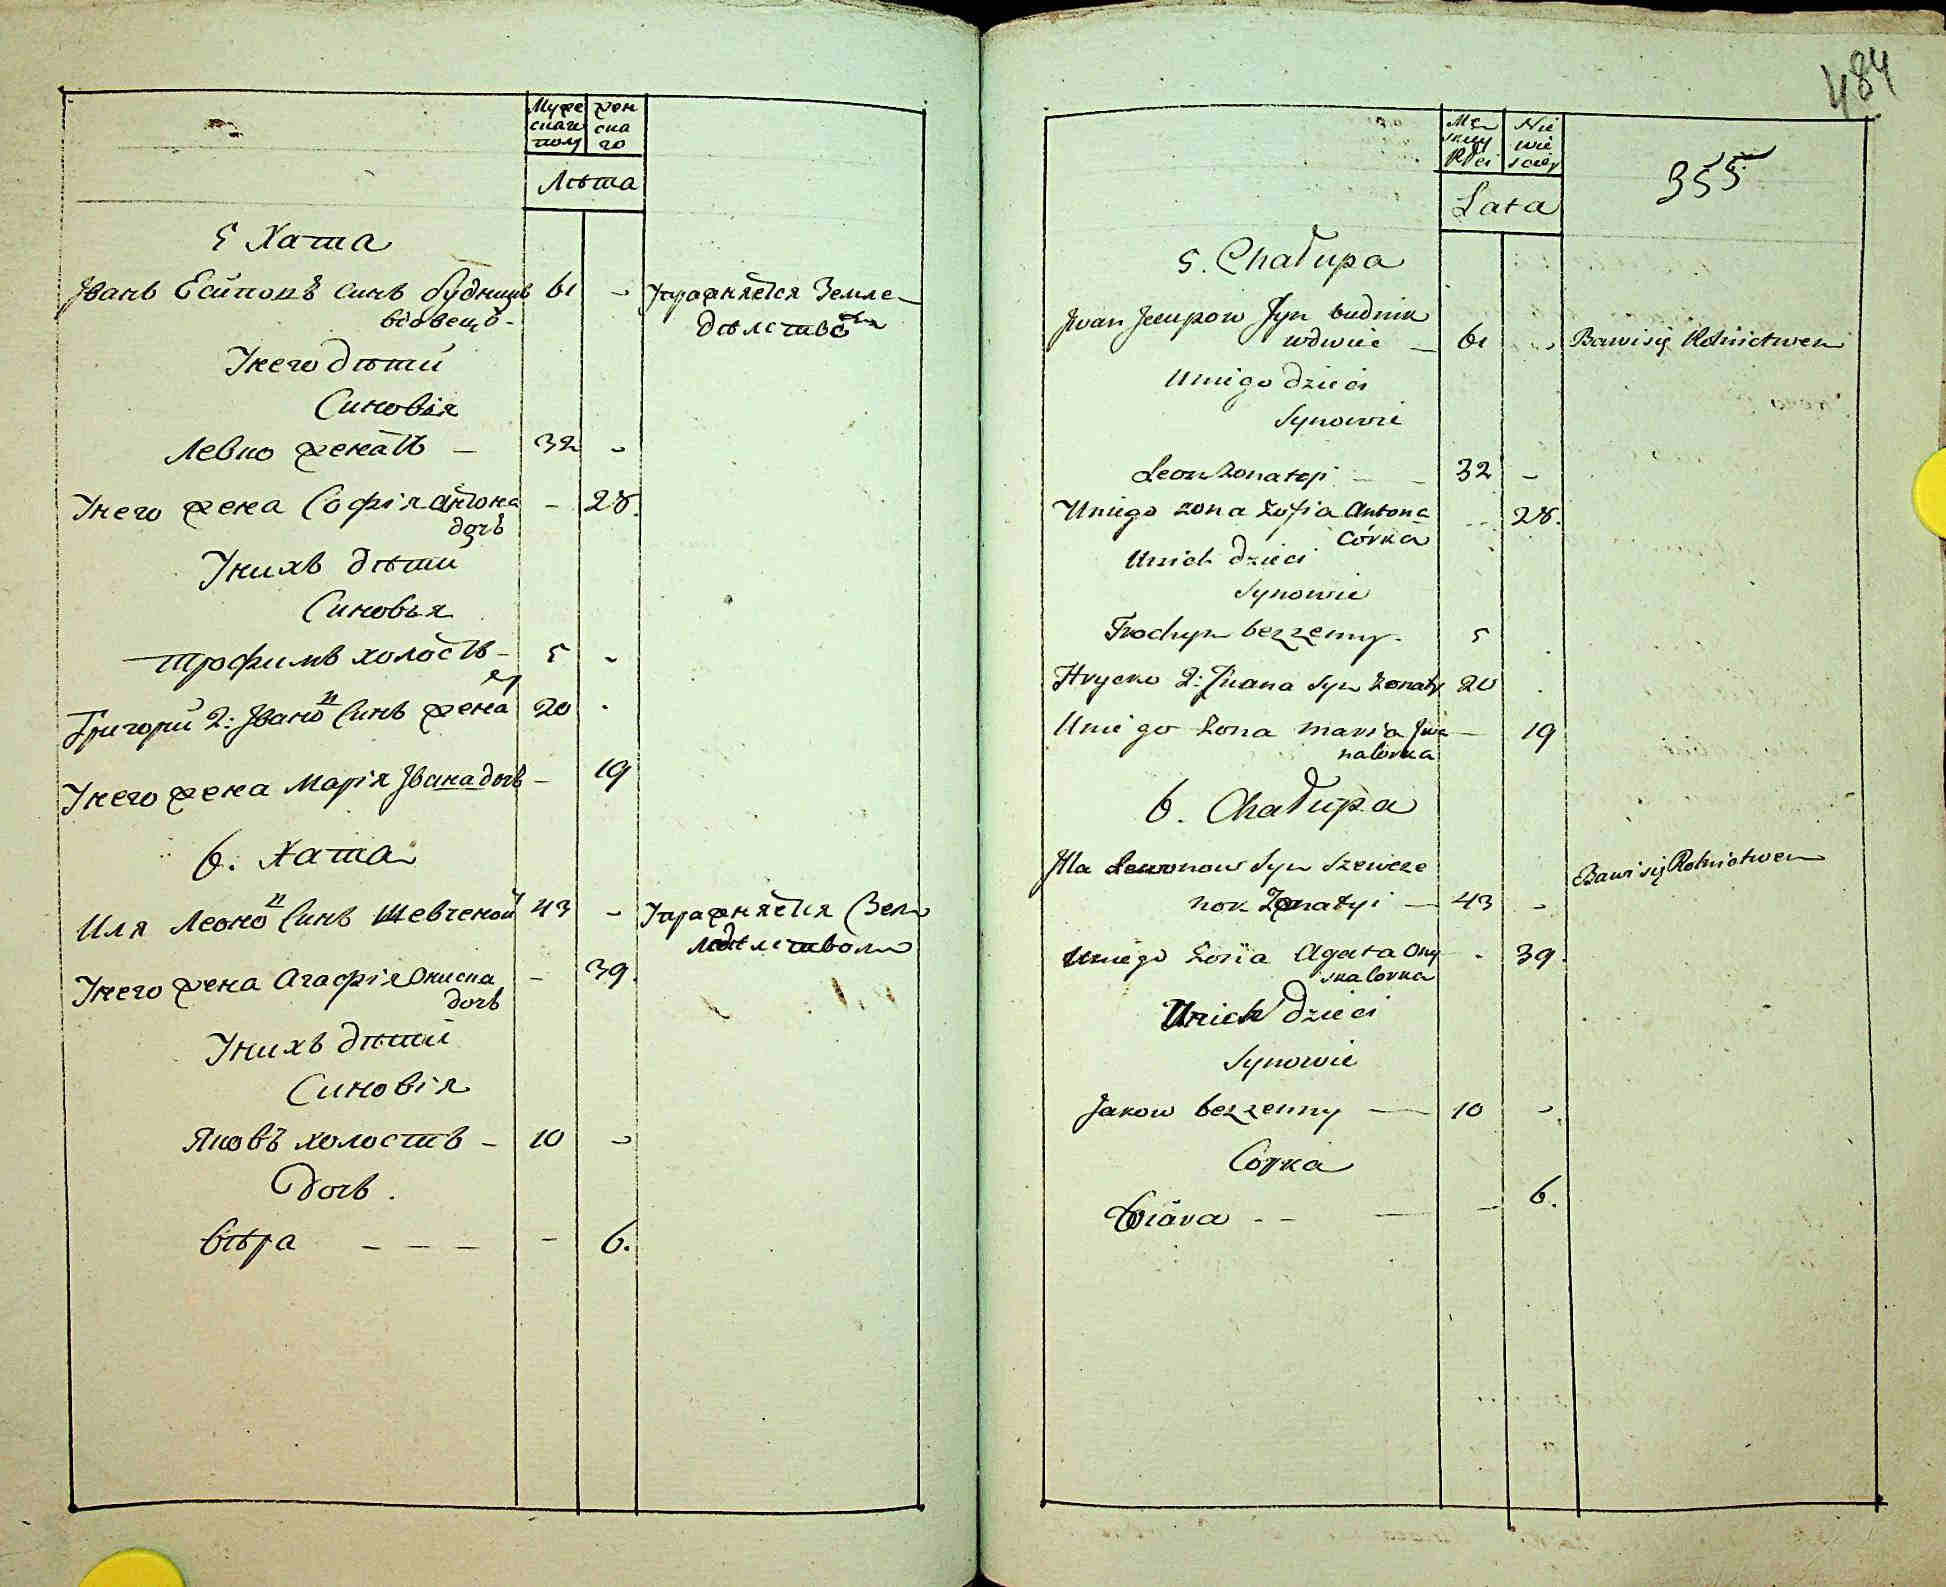 Муже
скаго
полу
жен
ска
го
Лѣта
5 Хата
Іванъ Есиповъ синъ будникъ 61 - Упражняется Земле-
вдовецъ - дѣлствомъ
Унего дѣти
Синовія
Левко женатъ - 32 -
Унего жена Софія Антона - 28.
дочъ
Унихъ дѣти
Синовья
Трофимъ холостъ - 5 -
Григорій 2: Івановъ Синъ жена 20 -
тъ
Унего жена Марія Івана дочъ - 19
6. Хата
Иля Леоновъ Синъ Шевченокъ 43 - Упражняется Зем
леделством
Унего жена Агафія Ониска - 39.
дочъ
Унихъ дѣти
Синовія
Яковъ холостъ - 10 -
Дочь.
Вѣра - - - - 6.
484
Mę
skiey
Płci
Nie
wie
sciey
355
Lata
5. Chałupa
Jwan Jesupow Syn budnik
wdwiec - 61 - Bawi się Rolnictwem
Uniego dzieci
Synowie
Leon Zonatyi - - 32 -
Uniego zona Zofia Antona - 28.
Córka
Unich dzieci
Synowie
Trochym bezzenny - 5
Hrycko 2: Jwana Syn Zonaty 20
Uniego Zona Maria Jwa - 19
na Corka
6. Chałupa
Jlla Lewonow Syn Szewcze
nok Zonatyi - 43 - Bawi się Rolnictwem
Uniego Zona Agata Ony - 39.
ska Corka
Unich dzieci
Synowie
Jakow bezzenny - 10 -
Corka
Wiara - - - - 6.